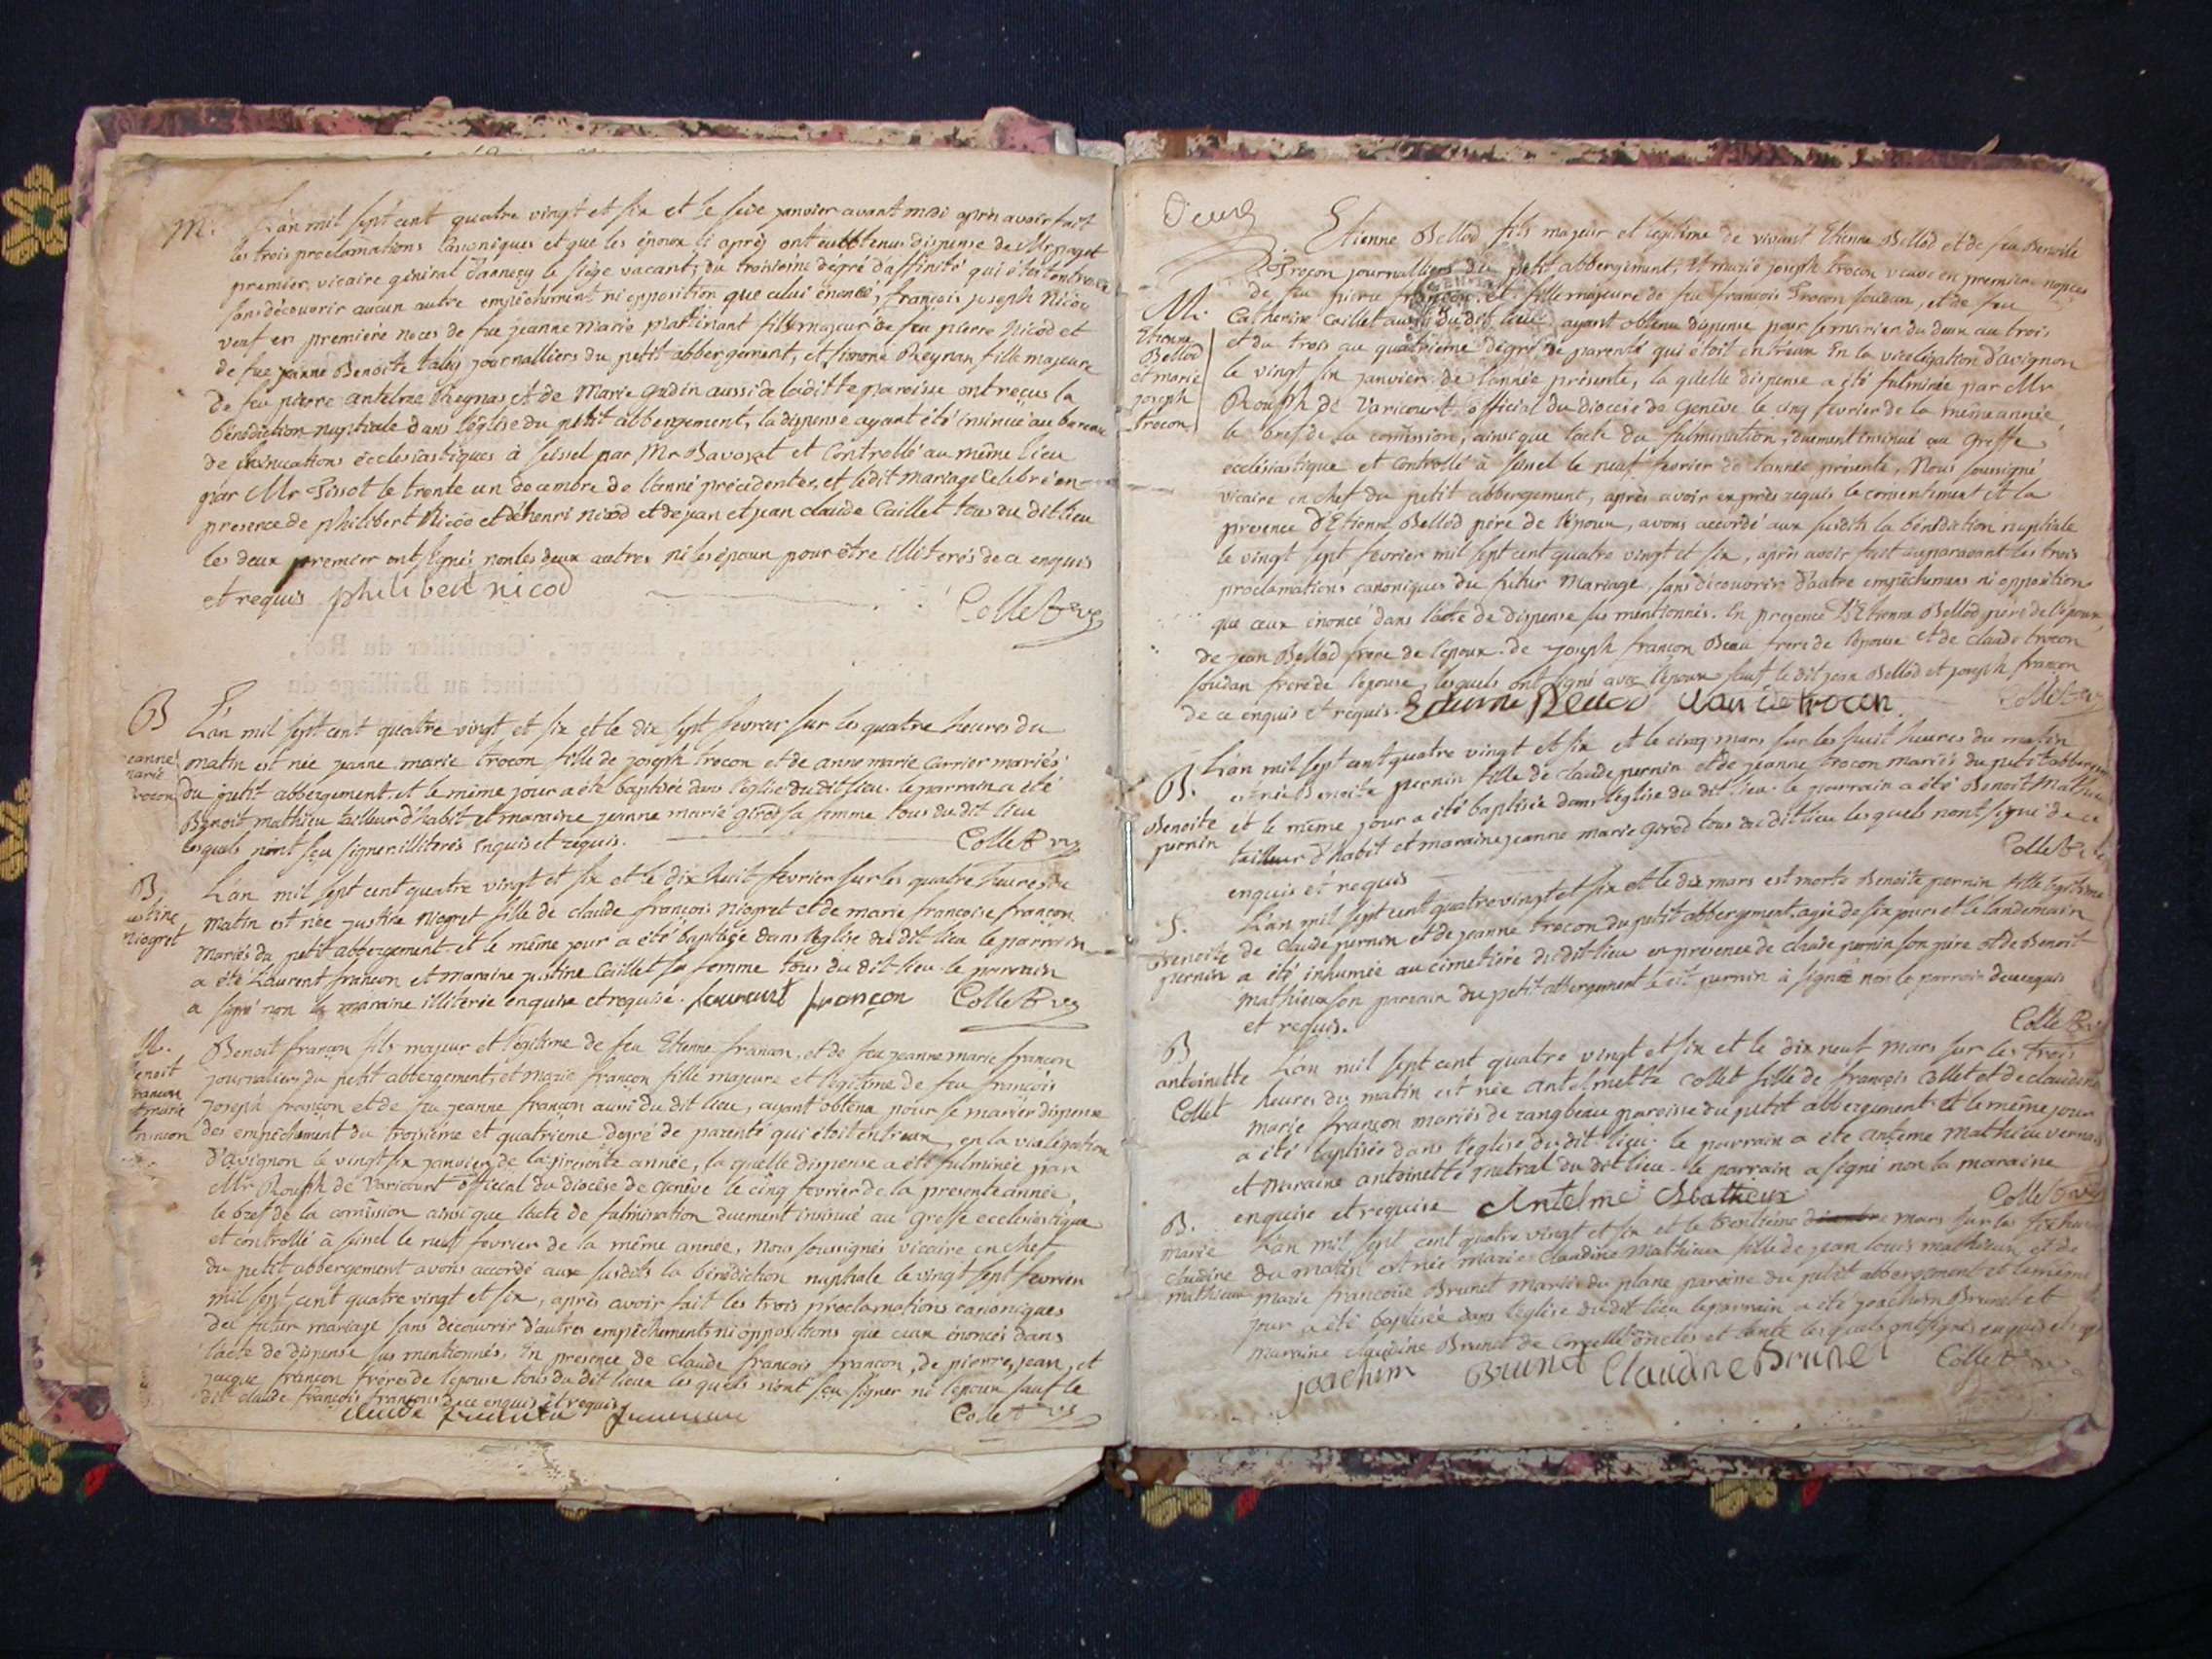 M. L'an mil sept cent quatre vingt et six et le seize janvier avant midi après avoir fait
les trois proclamations canoniques et que les époux ci après ont eu obtenus dispense de Mr puget
premier vicaire général d'annecy le siège vacant, du troisième dégré d'affinité qui étoit entreux
sans découvrir aucun autre empêchement ni opposition que celui énoncé, françois joseph Nicod
veuf en première noces de fue jeanne marie Martinant fils majeur de feu pierre Nicod et
de fue jeanne Benoite talus journalliers du petit abbergement, et simone Reynas fille majeure
de feu pierre antelme Reynas et de Marie gudin aussi de laditte paroisse ont reçus la
bénédiction nuptiale dans l'église du petit abbergement, la dispense ayant été insinué au bureau
de insinuations écclesiastiques à seissel par Mr Bavozat et Controllé au même lieu
par Mr Tissot le trente un decembre de l'anné précédentes, et ledit mariage célebré en
presence de philibert Nicod et de henri nicod et de jean et jean claude Caillet tous du dit lieu
les deux premier ont signés non les deux autres ni les époux pour être illiterés de ce enquis
et requis philibert nicod
Collet vic
B L'an mil sept cent quatre vingt et six et le dix sept fevrier sur les quatre heures du
jeanne marie trocon
matin est née jeanne marie trocon fille de joseph trocon et de anne marie Carrier mariés
du petit abbergement, et le même jour a été baptisée dans l'église du dit lieu. le parrain a été
Benoit mathieu tailleur d'habit et maraine jeanne marie girod sa femme tous du dit lieu
lesquels n'ont sçu signer illiterés enquis et requis.
Collet vic
B. L'an mil sept cent quatre vingt et six et le dix huit fevrier sur les quatre heures du
justine Niogret
matin est née justine Niogret fille de claude françois Niogret et de marie françoise françon
mariés du petit abbergement et le même jour a été baptisée dans l'église du dit lieu le parrain
a été Laurent françon et maraine justine Caillet sa femme tous du dit lieu le parrain
a signé non la maraine illiterée enquise et requise. laurent françon Collet vic
M.
Benoit françon et marie françon
Benoit françon fils majeur et légitime de feu Etienne françon, et de feu jeanne marie françon
journaliers du petit abbergement, et Marie françon fille majeure et légitime de feu françois
joseph françon et de fue jeanne françon aussi du dit lieu, ayant obtenu pour se marier dispense
des empêchement du troisième et quatrième degré de parenté qui étoit entr'eux, en la vicelégation
d'avignon le vingt six janvier de la présente année, la quelle dispense a été fulminée par
Mr Rouph de Varicourt official du diocèse de genève le cinq fevrier de la presente année,
le bref de la comission ainsi que l'acte de fulmination duement insinué au Greffe ecclesiastique
et controllé à seissel le neuf fevrier de la même année, Nous soussignés vicaire en chef
du petit abbergement avons accordé aux susdits la bénédiction nuptiale le vingt sept fevrier
mil sept cent quatre vingt et six, après avoir fait les trois proclamations canoniques
du futur mariage sans découvrir d'autres empêchements ni oppositions que ceux énoncés dans
l'acte de dispense sus mentionnés. En presence de claude françois françon, de pierre, jean, et
jacque françon frères de l'épouse tous du dit lieux les quels n'ont sçu signer ni l'époux sauf le
dit claude françois françon de ce enquis et requis.
Collet vic
Deux
M.
Etienne Bellod et marie joseph trocon
Etienne Bellod fils majeur et légitime de vivant Etienne Bellod et de feu Benoite
Trocon journalliers du petit abbergement, et marie joseph trocon veuve en première nopces
de feu pierre françon et fille majeure de feu françois Trocon soudan, et de feu
Catherine Caillet aussi du dit lieu ayant obtenu dispense pour se marier du deux au trois
et du trois au quatrième dégré de parenté qui étoit entr'eux En la vicelégation d'avignon
le vingt six janvier de l'année présente, la quelle dispense a été fulminée par Mr
Rouph de Varicourt official du diocèse de Genève le cinq fevrier de la même année,
le bref de la comission, ainsi que l'acte du fulmination, duement insinué au greffe
ecclésiastique et controllé à seissel le neuf fevrier de l'année présente, Nous soussigné
vicaire en chef du petit abbergement, après avoir exprès requis le consentiment et la
presence d'Etienne Bellod père de l'époux, avons accordé aux susdits la bénédiction nuptiale
le vingt sept fevrier mil sept cent quatre vingt et six, après avoir fait auparavant les trois
proclamations canoniques du futur Mariage, sans découvrir d'autre empêchemens ni opposition
que ceux énoncé dans l'acte de dispense sus mentionnés. En presence d'Etienne Bellod père de l'époux,
de jean Bellod frère de l'époux. de joseph françon Beau frere de l'épouse et de claude trocon
soudan frere de l'épouse, lesquels ont signé avec l'époux sauf le dit jean Bellod et joseph françon
de ce enquis et requis. Etienne Bellod claude trocon
Collet vic
B.
Benoite pernin
L'an mil sept cent quatre vingt et six et le cinq mars sur les huit heures du matin
est née Benoite pernin fille de claude pernin et de jeanne trocon mariés du petit abbergement
et le même jour a été baptisée dans l'église du dit lieu. le parrain a été Benoit Mathieu
tailleur d'habit et maraine jeanne marie girod tous du dit lieu lesquels n'ont signé de ce
enquis et requis
Collet vic
S.
Benoite pernin
L'an mil sept cent quatre vingt et six et le dix mars est morte Benoite pernin fille légitime
de claude pernin et de jeanne trocon du petit abbergement agée de six jours et le landemain
a été inhumée au cimetière du dit lieu en presence de claude pernin son père et de Benoit
Mathieu son parrain du petit abbergement le dit pernin à signé non le parrain de ce enquis
et requis.
Collet vic
B
antoinette Collet
L'an mil sept cent quatre vingt et six et le dix neuf Mars sur les trois
heures du matin est née antelmette Collet fille de françois Collet et de claudine
marie françon mariés de rangbeau paroisse du petit abbergement et le même jour
a été baptisée dans l'église du dit lieu. le parrain a été anteme Mathieu
et maraine antoinette mutral du dit lieu. le parrain a signé non la maraine
enquise et requise Antelme Mathieux
Collet vic
B.
marie claudine mathieux
L'an mil sept cent quatre vingt et six et le trentième mars sur les six heures
du matin est née marie claudine Mathieux fille de jean louis mathieux et de
marie françoise Brunet mariés du plane paroisse du petit abbergement et le même
jour a été baptisée dans l'église du dit lieu le parrain a été joachim Brunet et
maraine claudine Brunet de Corcelle oncles et tante les quels ont signés enquis et requis
joachim Brunet Claudine Brunet
Collet vic